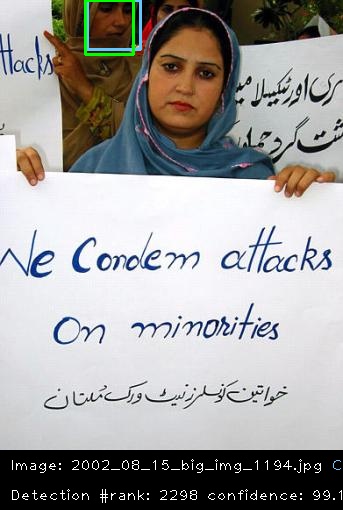 ttacks
We Condem attacks
On minorities
خواتین کونسلرز نیٹ ورک ملتان
Image: 2002_08_15_big_img_1194.jpg C
Detection #rank: 2298 confidence: 99.1